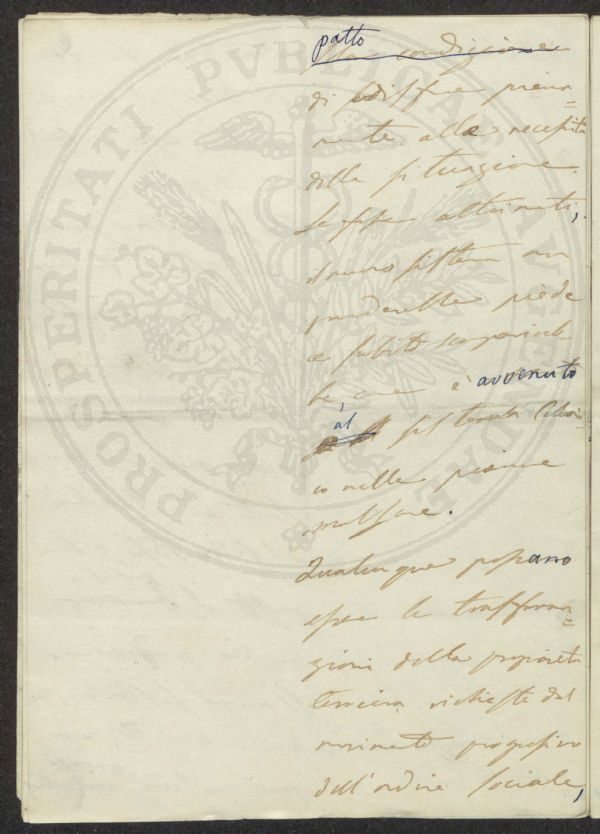 patto
di
mente alle necessità
della situazione.
Se fosse altrimenti,
il nuovo sistema non
prenderebbe piede
e subito scomparireb-
be, come è avvenuto
al sistema
co nelle pianure
Qualunque possano
essere le trasforma=
zioni della proprietà
terriera richieste dal
movimento progressivo
dell'ordine sociale,
PROSPERITATI PVBLICAE AVGENDAE